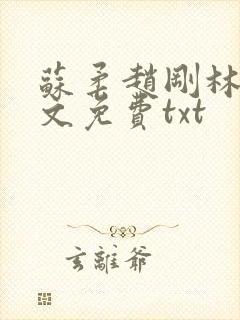 蘇柔趙剛林
文免費txt
玄離爺